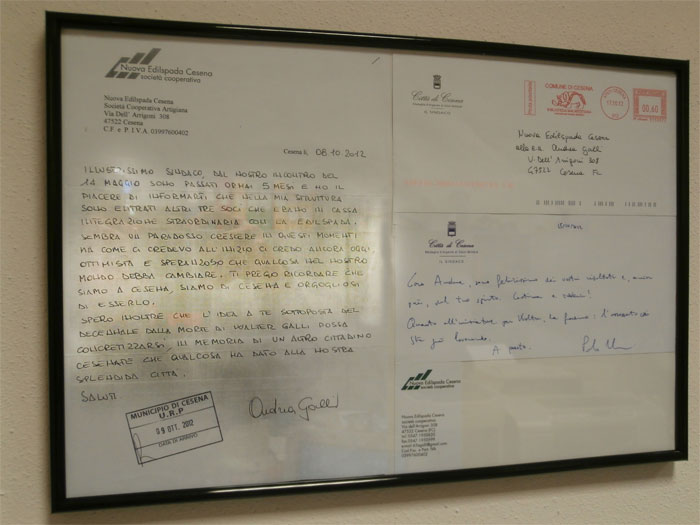 Nuova Edilspada Cesena
società cooperativa
Nuova Edilspada Cesena
Società Cooperativa Artigiana
Via Dell' Arrigoni 308
47522 Cesena
C.F. e P.I.V.A 03997600402
Cesena lì, 08.10.2012
ILLUSTRISSIMO SINDACO, DAL NOSTRO INCONTRO DEL
14 MAGGIO SONO PASSATI ORMAI 5 MESI E HO IL
PIACERE DI INFORMARTI CHE NELLA MIA STRUTTURA
SONO ENTRATI ALTRI TRE SOCI CHE ERANO IN CASSA
INTEGRAZIONE STRAORDINARIA CON LA EDILSPADA.
SEMBRA UN PARADOSSO CRESCERE IN QUESTI MOMENTI
MA COME CI CREDEVO ALL'INIZIO CI CREDO ANCORA OGGI
OTTIMISTA E SPERANZOSO CHE QUALCOSA NEL NOSTRO
MONDO DEBBA CAMBIARE. TI PREGO RICORDARE CHE
SIAMO A CESENA, SIAMO DI CESENA E ORGOGLIOSI
DI ESSERLO.
SPERO INOLTRE CHE L'IDEA A TE SOTTOPOSTA DEL
DECENNALE DALLA MORTE DI WALTER GALLI POSSA
CONCRETIZZARSI, IN MEMORIA DI UN ALTRO CITTADINO
CESENATE CHE QUALCOSA HA DATO ALLA NOSTRA
SPLENDIDA CITTÀ.
SALUTI
Andrea Galli
MUNICIPIO DI CESENA
U.R.P.
08 OTT. 2012
DATA DI ARRIVO
Città di Cesena
IL SINDACO
COMUNE DI CESENA
00,60
Nuova Edilspada Cesena
alla c.a. Andrea Galli
V. Dell'Arrigoni 308
47522 Cesena FC
Città di Cesena
IL SINDACO
Caro Andrea, sono felicissimo dei vostri risultati e, ancora
più, del tuo spirito. Continua e vedrai!
Quanto all'iniziativa per Walter, la faremo: l'assessorato
sta già lavorando.
A presto.
Nuova Edilspada Cesena
società cooperativa
Nuova Edilspada Cesena
società cooperativa
Via dell'Arrigoni 308